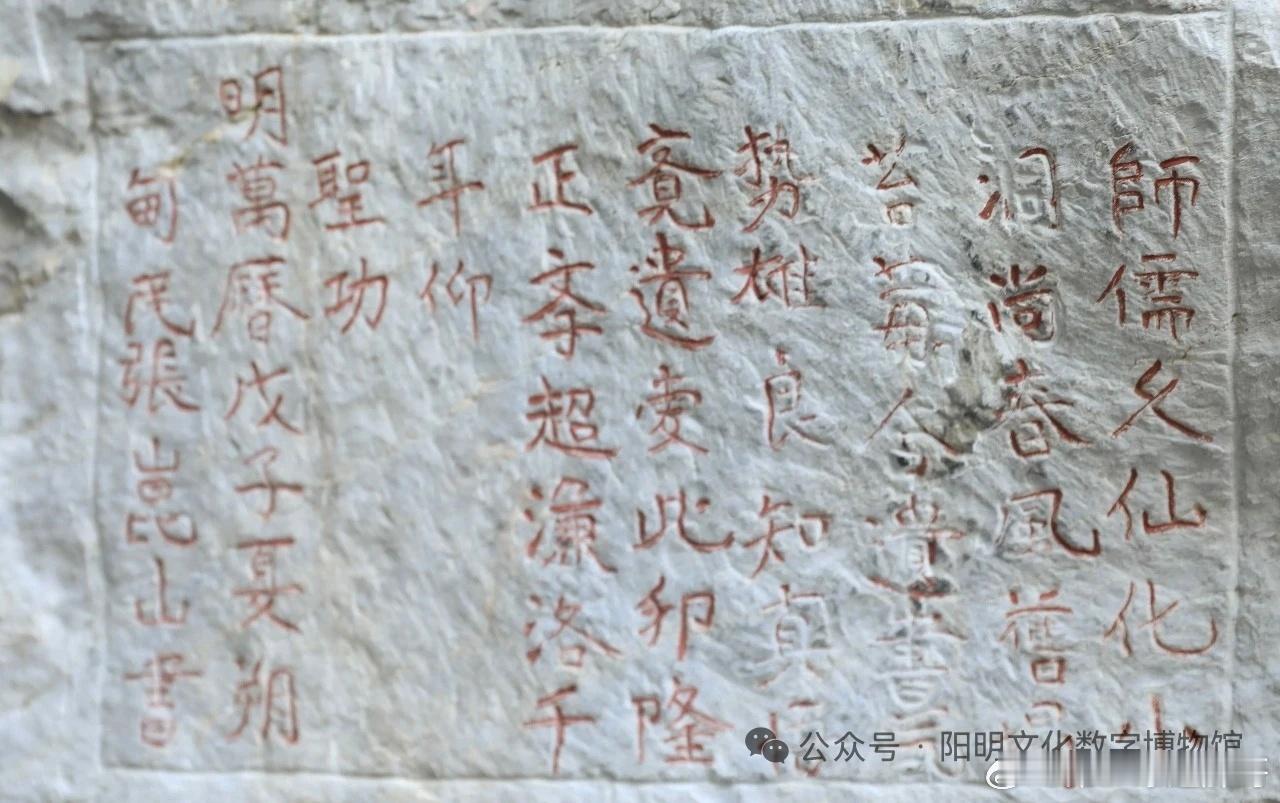 師儒久仙化小
洞尚春風舊
苔莓合遺書
勢雄良知真
竟遺愛此卯隆
正斈超濂洛千
年仰
聖功
明萬曆戊子夏朔
甸民張崑山書
公众号 · 阳明文化数字博物馆